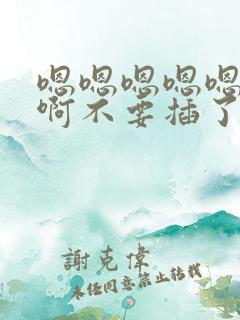 嗯嗯嗯嗯嗯
啊不要插了
謝克偉
未经同意禁止转载